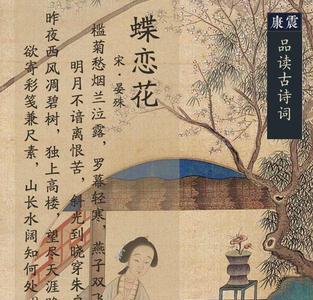 康震
品读古诗词
蝶恋花
宋·晏殊
槛菊愁烟兰泣露，罗幕轻寒，燕子双飞
明月不谙离恨苦，斜光到晓穿朱
昨夜西风凋碧树，独上高楼，望尽天涯
欲寄彩笺兼尺素，山长水阔知何处